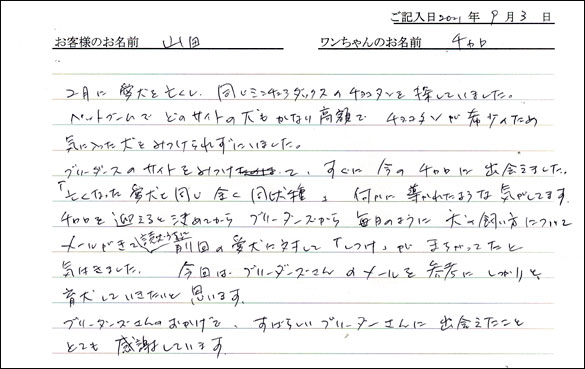 ご記入日 2021 年 9 月 3 日
お客様のお名前 山田 ワンちゃんのお名前 チョロ
2月に愛犬を亡くし、同じミニチュアダックスのチョコタンを探していました。
ペットブームでどのサイトの犬もかなり高額でチョコタンが希少のため
気に入った犬をみつけられずにいました。
ブリーダーズのサイトをみつけて、すぐに今のチョロに出会えました。
「亡くなった愛犬と同じ全く同じ犬種」何かに導かれたような気がしてます。
チョロを迎えると決めてからブリーダーズから毎日のように犬の飼い方について
メールがきて 読むうちに 前回の愛犬に対して「しつけ」がまちがってたと
気付きました。 今回は、ブリーダーズさんのメールを参考にしっかりと、
育犬していきたいと思います。
ブリーダーズさんのおかげで、すばらしいブリーダーさんに出会えたこと
とても感謝しています。